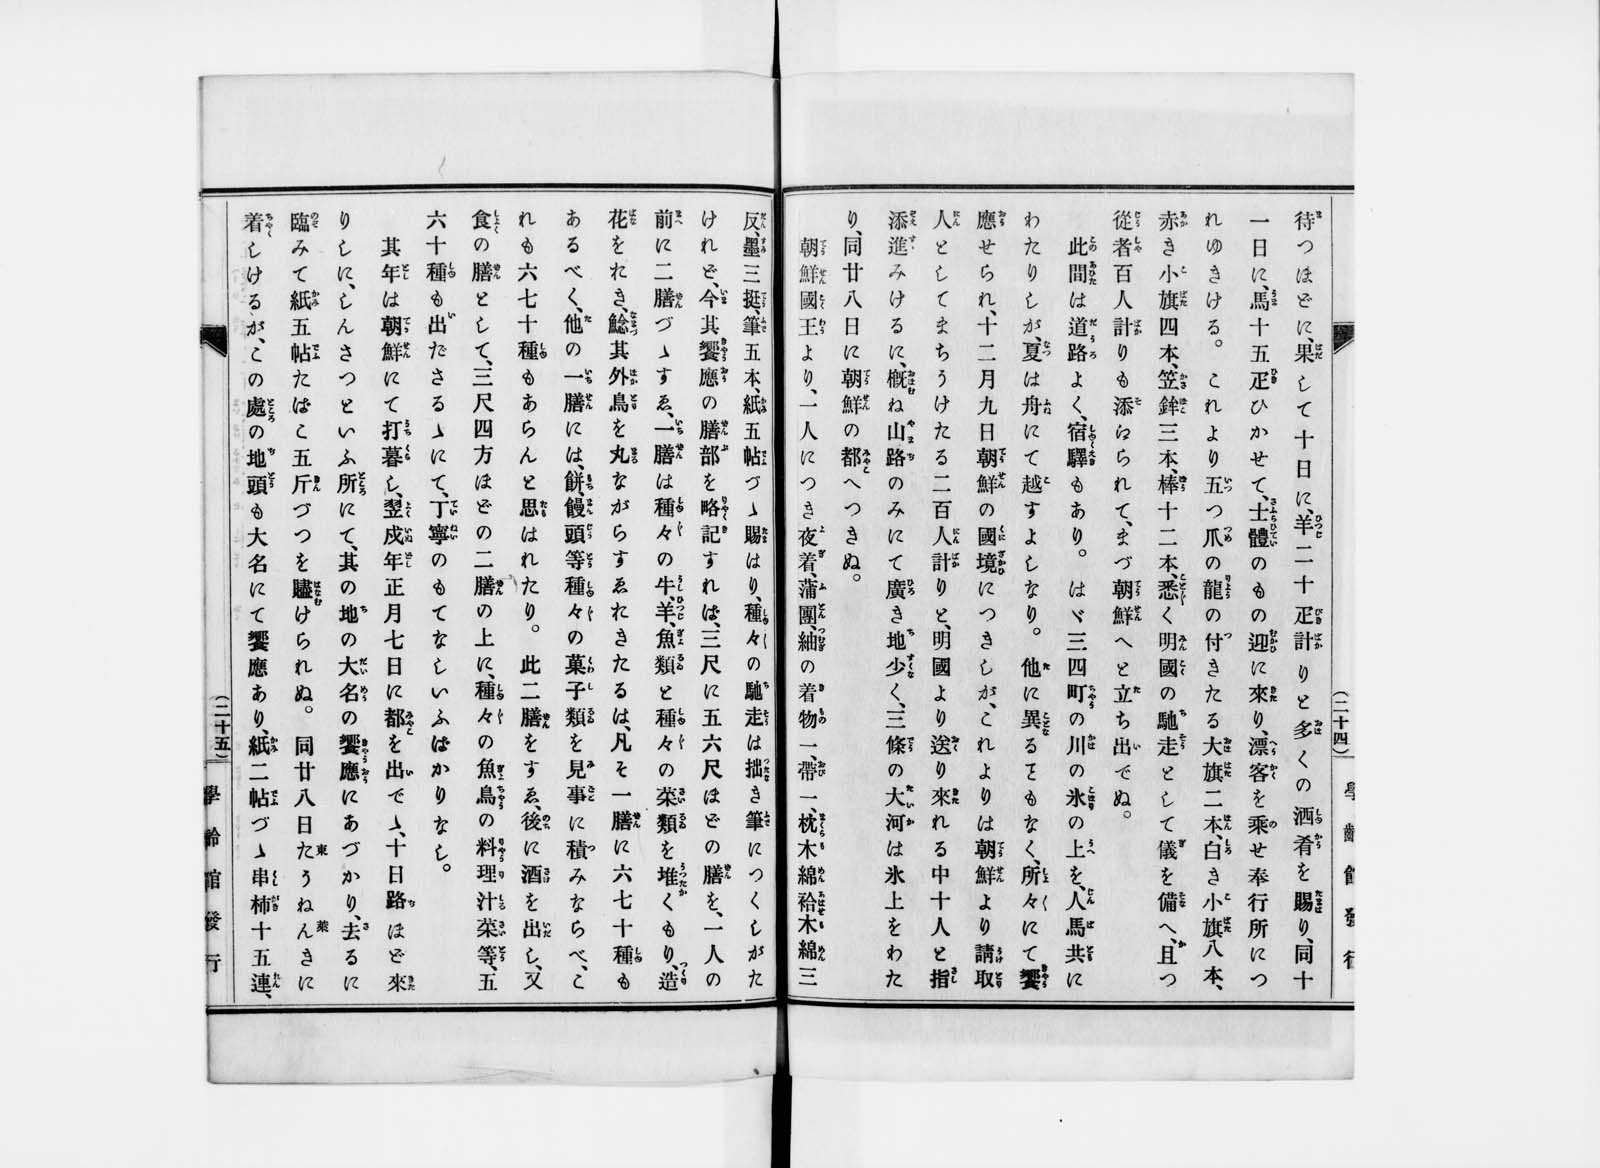 待つほどに、果して十日に、羊二十疋計りと多くの酒肴を賜り、同十
一日に、馬十五疋ひかせて、士體のもの迎に來り、漂客を乘せ奉行所につ
れゆきける。これより五つ爪の龍の付きたる大旗二本、白き小旗八本、
赤き小旗四本、笠鉾三本、棒十二本、悉く明國の馳走として儀を備へ、且つ
從者百人計りも添はられて、まづ朝鮮へと立ち出でぬ。
此間は道路よく、宿驛もあり。はゞ三四町の川の氷の上を、人馬共に
わたりしが、夏は舟にて越すよしなり。他に異るともなく、所々にて饗
應せられ、十二月九日朝鮮の國境につきしが、これよりは朝鮮より請取
人としてまちうけたる二百人計りと、明國より送り來れる中十人と指
添進みけるに、概ね山路のみにて廣き地少く、三條の大河は氷上をわた
り、同廿八日に朝鮮の都へつきぬ。
朝鮮國王より、一人につき夜着、蒲團、紬の着物一、帶一、枕木綿袷木綿三
(二十四)
學齡館發行
反、墨三挺、筆五本、紙五帖づゝ賜はり、種々の馳走は拙き筆につくしがた
けれど、今其饗應の膳部を略記すれば、三尺に五六尺ほどの膳を、一人の
前に二膳づゝすゑ、一膳は種々の牛、羊、魚類と種々の菜類を堆くもり、造
花をれき、鯰其外鳥を丸ながらすゑれきたるは、凡そ一膳に六七十種も
あるべく、他の一膳には、餅、饅頭等種々の菓子類を見事に積みならべ、こ
れも六七十種もあらんと思はれたり。此二膳をすゑ、後に酒を出し、又
食の膳として、三尺四方ほどの二膳の上に、種々の魚鳥の料理汁菜等、五
六十種も出ださるゝにて、丁寧のもてなしいふばかりなし。
其年は朝鮮にて打暮し、翌戍年正月七日に都を出でゝ、十日路ほど來
りしに、しんさつといふ所にて、其の地の大名の饗應にあづかり、去るに
臨みて紙五帖たばこ五斤づつを贐けられぬ。同廿八日たうねんきに
着しけるが、この處の地頭も大名にて饗應あり、紙二帖づゝ串柿十五連、
(二十五)
學齡館發行